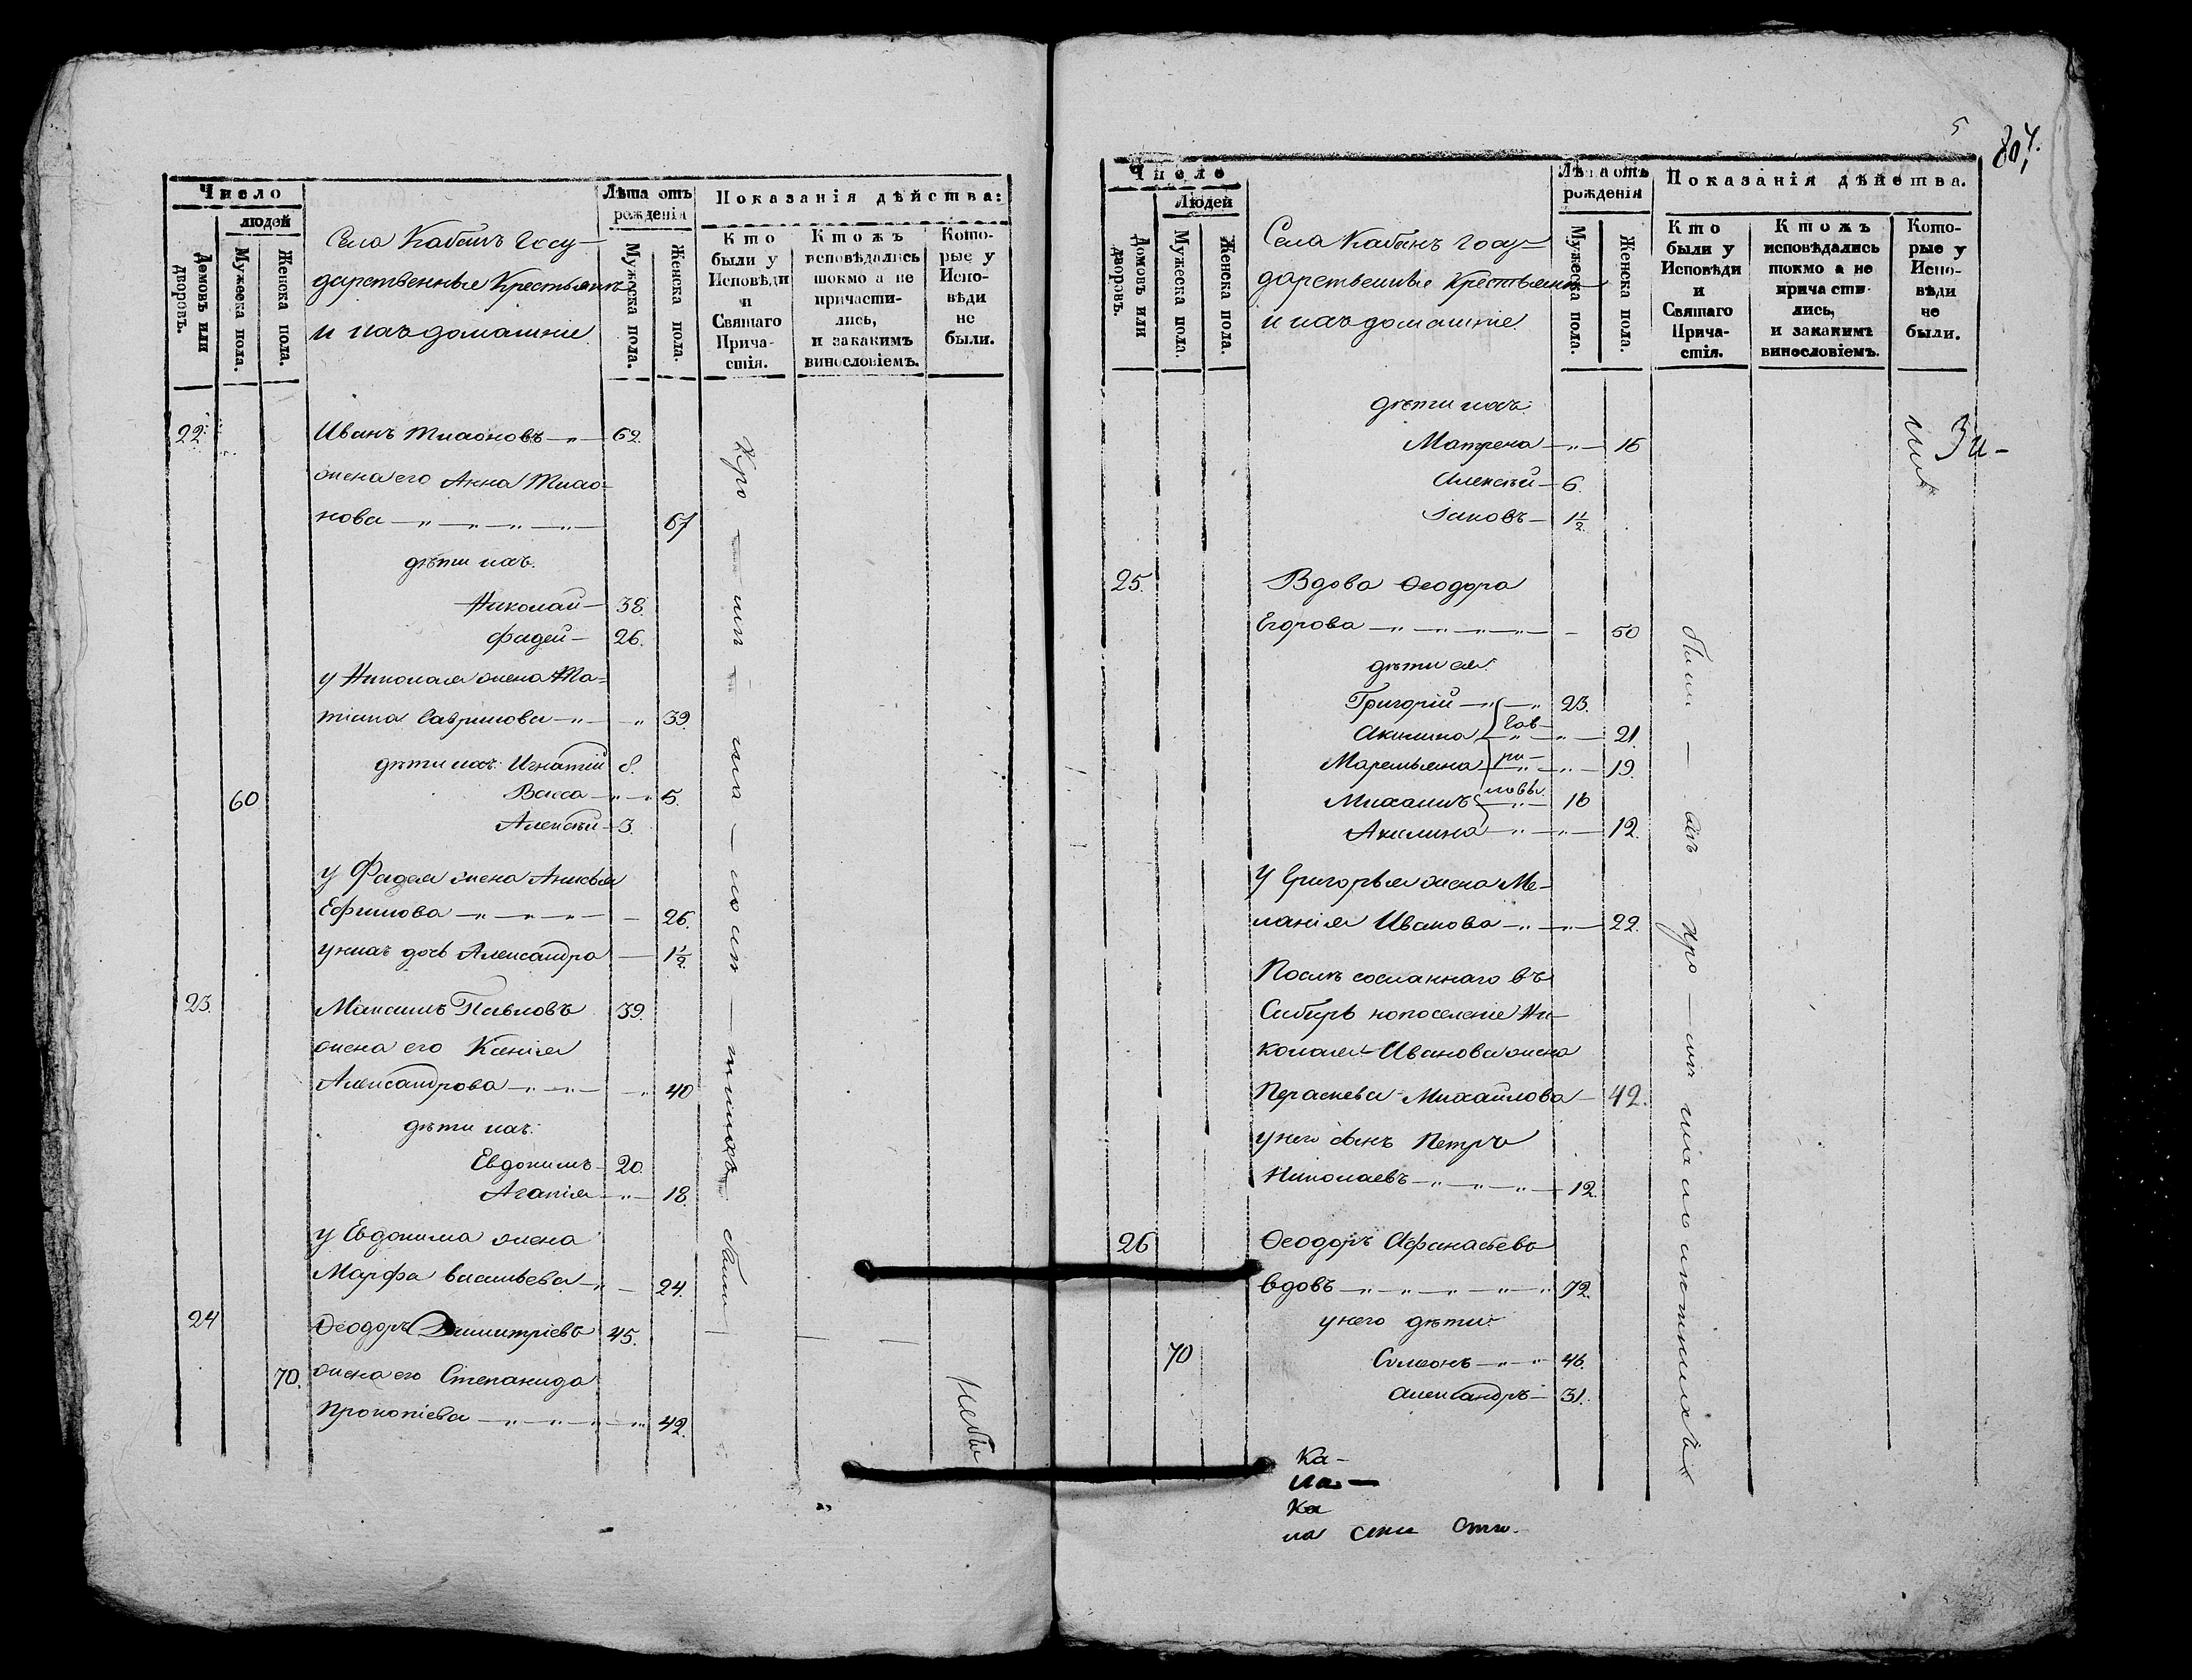 Число
людей
Домовъ или дворовъ.
Мужеска пола.
Женска пола.
Села Кабанъ Госу-
дарственные Крестьяне
и ихъ домашніе
Лѣта отъ
рожденія
Мужеска пола.
Женска пола.
Показанія дѣйства:
Кто
были у
Исповѣди
и
Святаго
Прича-
стія.
Ктожъ
исповѣдались
токмо а не
причасти-
лись,
и закакимъ
винословіемъ.
Кото-
рые у
Испо-
вѣди
не
были.
22. Иванъ Тихоновъ 62.
жена его Анна Тихо-
нова 67
дѣти ихъ.
Николай 38.
Фадей 26.
у Николая жена Та-
тіана Гаврилова 39.
дѣти ихъ: Игнатій 8.
60 Васса 5.
Алексѣй 3.
у Фадея жена Анисья
Ефимова 26.
у нихъ дочь Александра 1½.
23. Максимъ Павловъ 39.
жена его Ксенія
Александрова 40
дѣти ихъ:
Евдокимъ 20.
Агапія 18.
у Евдокима жена
Марфа Васильева 24.
24 Ѳеодоръ Димитріевъ 45.
70. жена его Степанида
Прокопіева 42.
Небы
5
807.
Число
Людей
Домовъ или дворовъ.
Мужеска пола.
Женска пола.
Села Кабанъ Госу-
дарственные Крестьяне
и ихъ домашніе
Лѣта отъ
рожденія
Мужеска пола.
Женска пола.
Показанія дѣйства.
Кто
были у
Исповѣди
и
Святаго
Прича-
стія.
Ктожъ
исповѣдались
токмо а не
причасти-
лись,
и закакимъ
винословіемъ.
Кото-
рые у
Испо-
вѣди
не
были.
дѣти ихъ:
Матрена 16
Алексѣй 6.
Іаковъ 1½.
25. Вдова Ѳеодора
Егорова 50
дѣти ея:
Григорій 23.
Акилина Гав- 21.
Маремьяна ри- 19.
Михаилъ ловы. 16
Акилина 12.
У Григорья жена Ме-
ланія Иванова 22.
Послѣ сосланнаго въ
Сибирь на поселеніе Ни-
колая Иванова жена
Параскева Михайлова 42.
у него сынъ Петръ
Николаевъ 12.
26 Ѳеодоръ Афанасьевъ
вдовъ 72.
у него дѣти:
70 Симеонъ 46.
Александръ 31.
Ка-
Ка